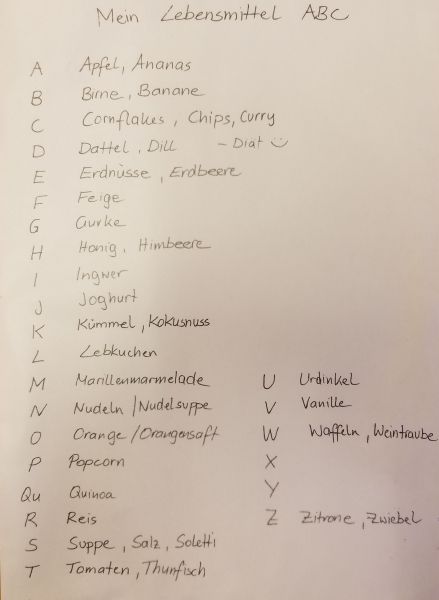 Mein Lebensmittel ABC
A Apfel, Ananas
B Birne, Banane
C Cornflakes, Chips, Curry
D Dattel, Dill - Diät
E Erdnüsse, Erdbeere
F Feige
G Gurke
H Honig, Himbeere
I Ingwer
J Joghurt
K Kümmel, Kokusnuss
L Lebkuchen
M Marillenmarmelade
N Nudeln / Nudelsuppe
O Orange / Orangensaft
P Popcorn
Qu Quinoa
R Reis
S Suppe, Salz, Soletti
T Tomaten, Thunfisch
U Urdinkel
V Vanille
W Waffeln, Weintraube
X
Y
Z Zitrone, Zwiebel